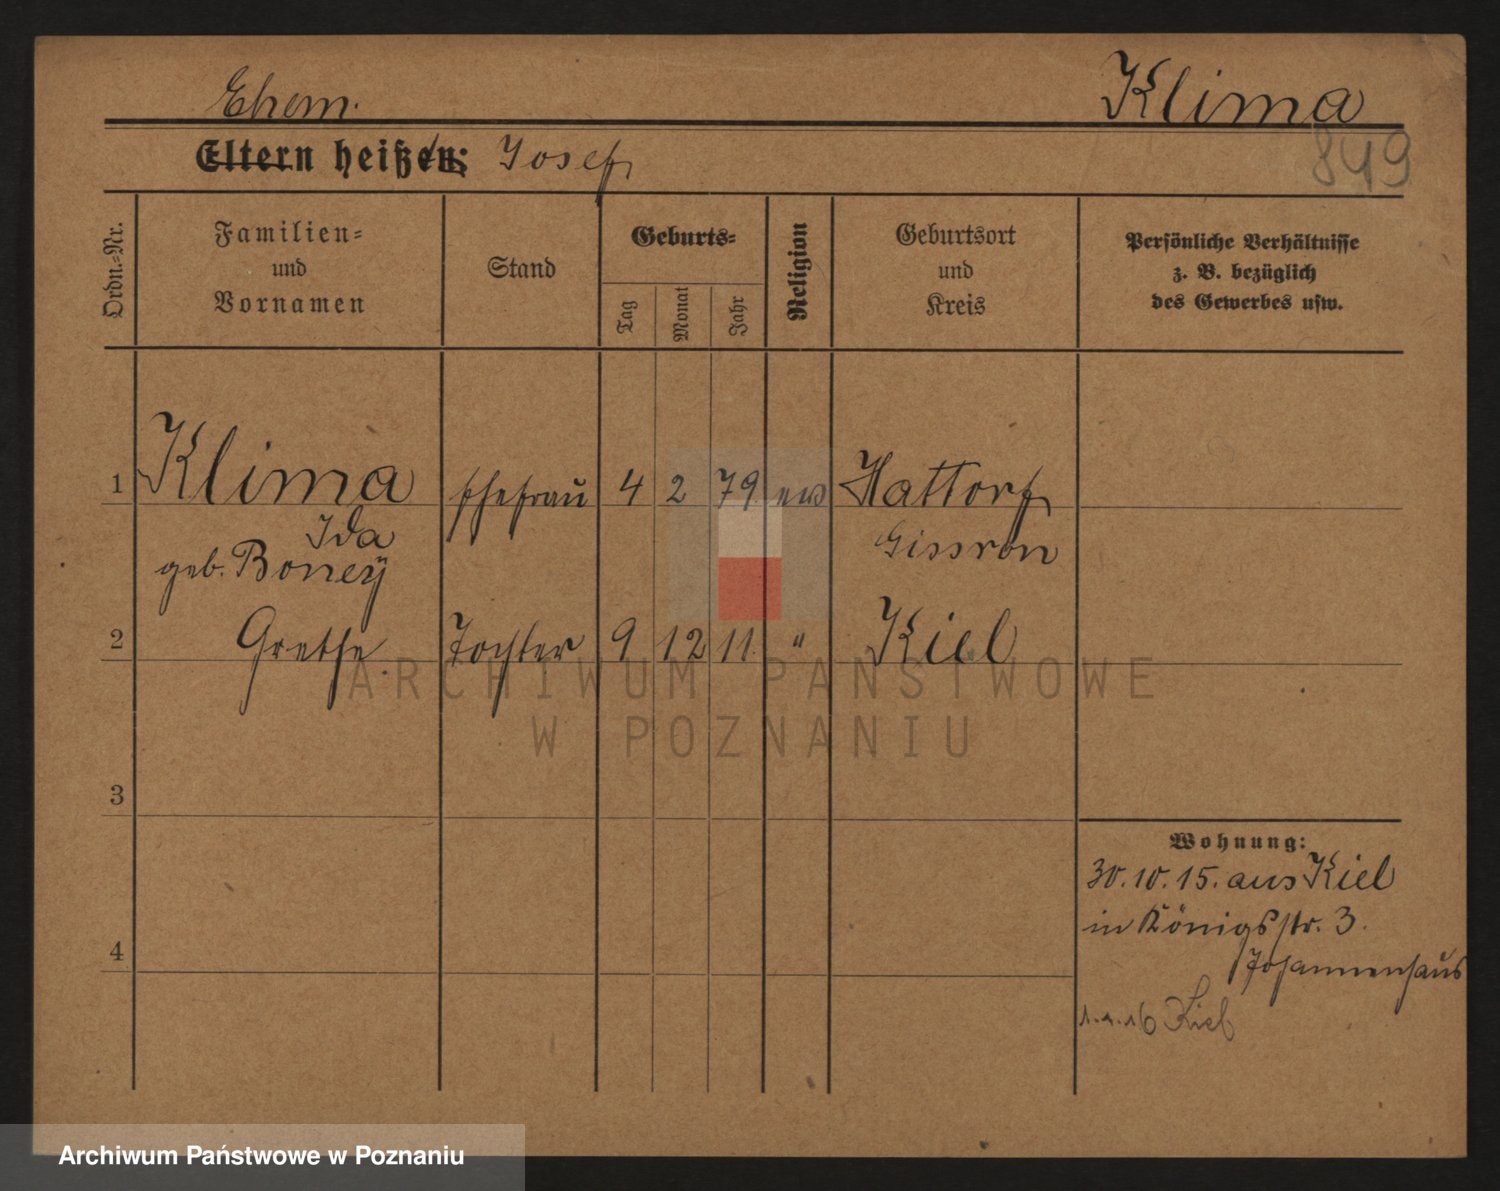 Ehem.
Klima
849
Eltern heißen: Josef
Ordn.-Nr.
Familien-
und
Vornamen
Stand
Geburts-
Tag
Monat
Jahr
Religion
Geburtsort
und
Kreis
Persönliche Verhältnisse
z. B. bezüglich
des Gewerbes usw.
1 Klima Ehefrau 4 2 79 ev Hattorf
Ida
geb. Boney
2 Grethe Tochter 9 12 11 " Kiel
3
4
Wohnung:
30.10.15. aus Kiel
in Königsstr. 3.
Johannenhaus
16 Kiel
ARCHIWUM PAŃSTWOWE
W POZNANIU
Archiwum Państwowe w Poznaniu